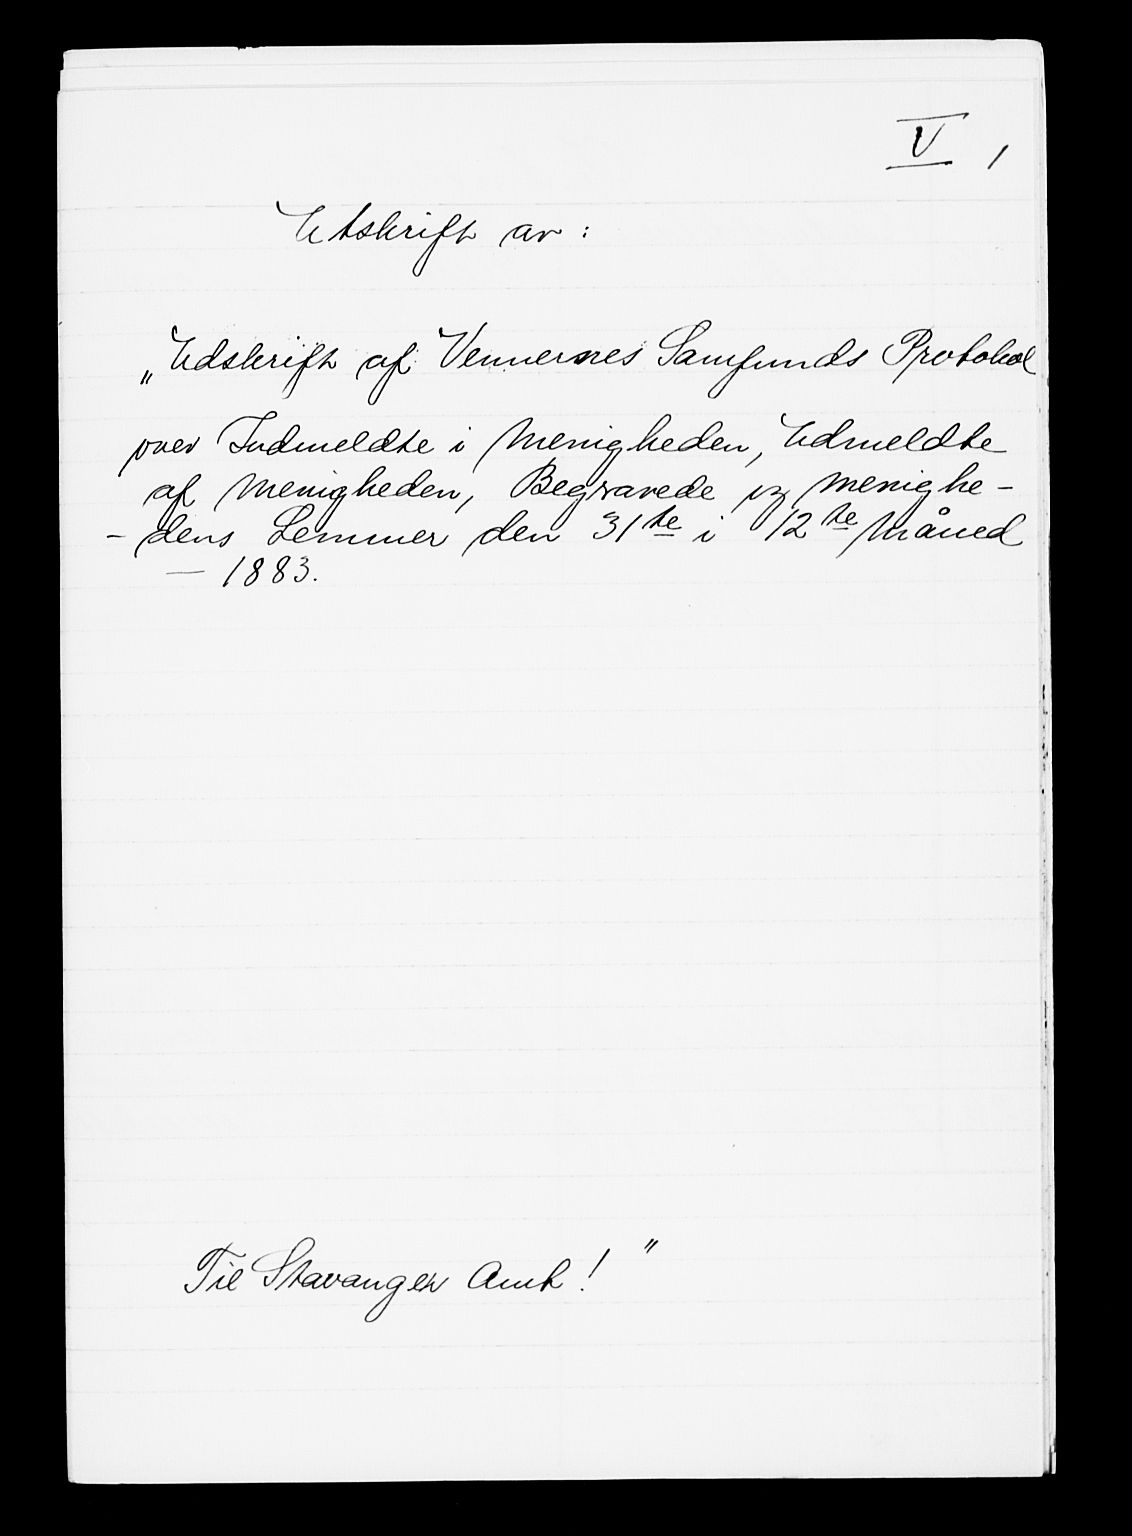 V 1
Utskrift av:
„Udskrift af Vennernes Samfunds Protokol
over Indmeldte i Menigheden, Udmeldte
af Menigheden, Begravede og Menighe-
- dens Lemmer den 31te i 12te Måned
— 1883.
Til Stavanger Amt! "